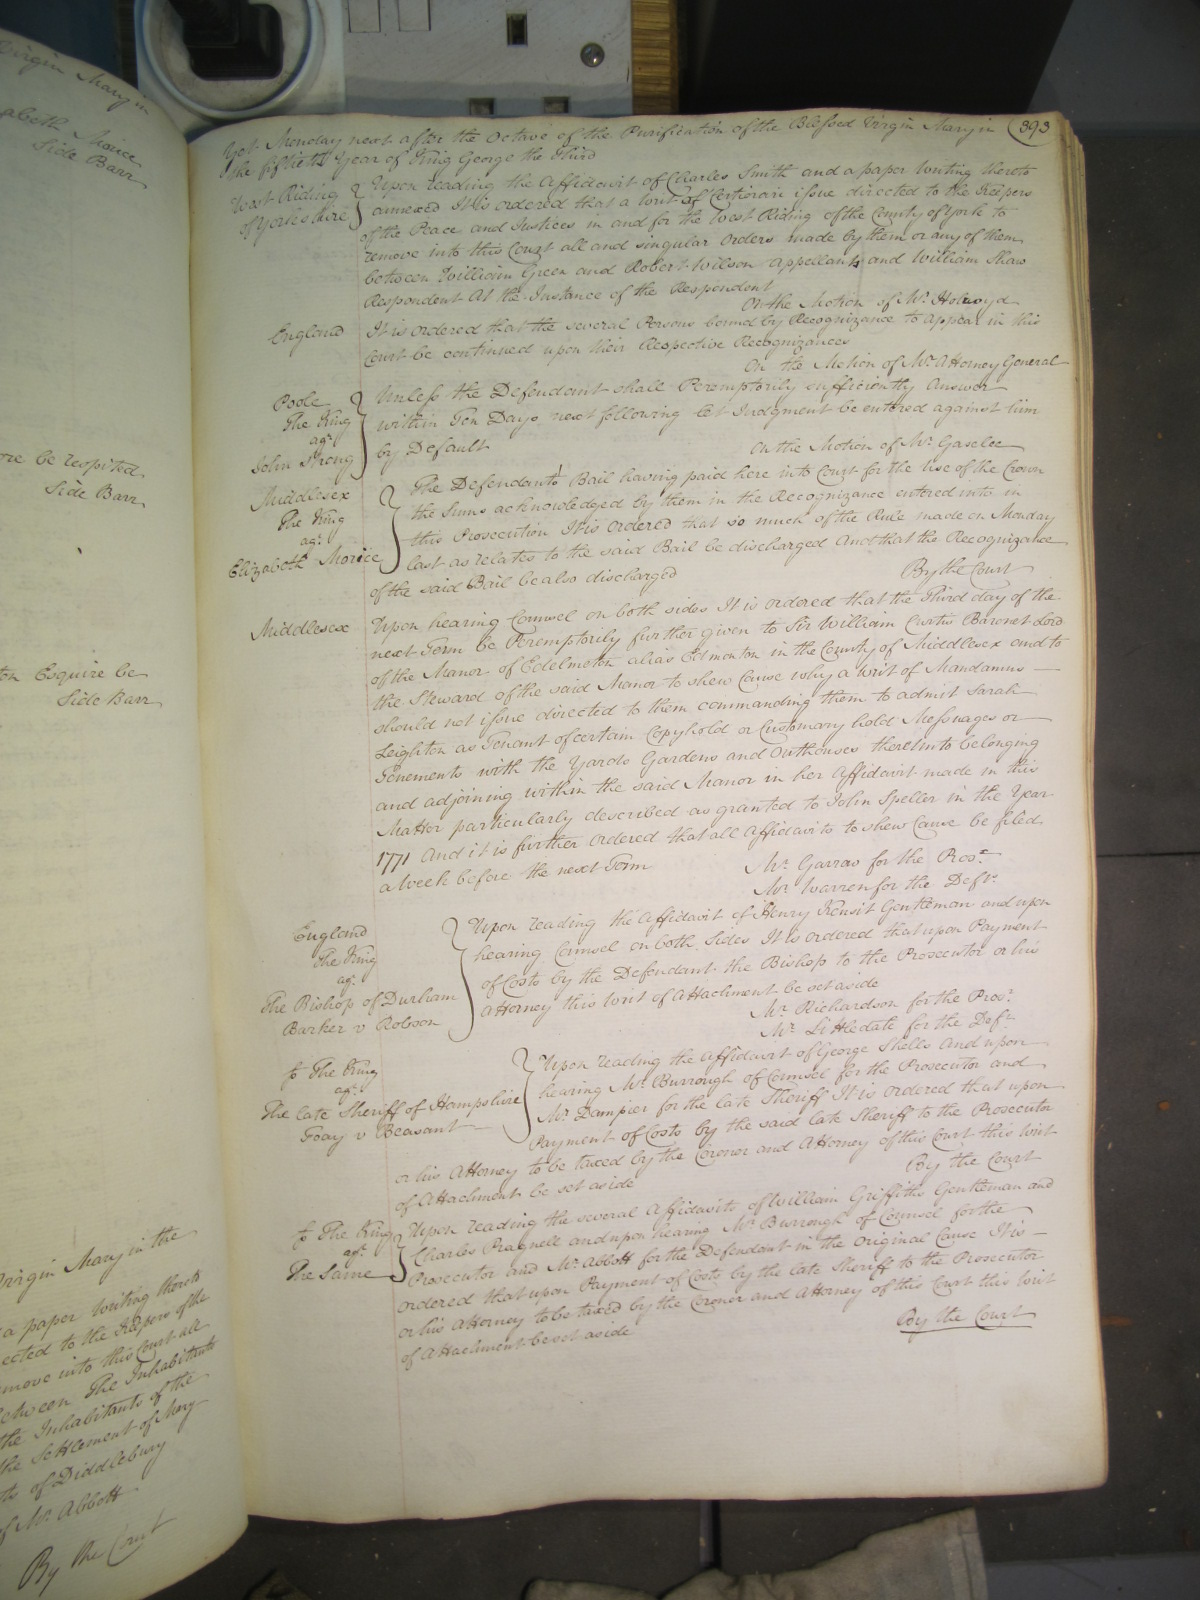 Virgin Mary in
Elizabeth Morice
Side Barr
be respited
Side Barr
Esquire be
Side Barr
Virgin Mary in the
a paper writing thereto
directed to the Keepers of the
remove into this Court all
between The Inhabitants
the Inhabitants of the
the Settlement of Mary
of Diddlebury
of Mr. Abbott
By the Court
Yet Monday next after the Octave of the Purification of the Blessed Virgin Mary in 393
the fiftieth Year of King George the Third
West Riding
of Yorkshire
Upon reading the Affidavit of Charles Smith and a paper Writing thereto
annexed It is ordered that a Writ of Certiorari issue directed to the Keepers
of the Peace and Justices in and for the West Riding of the County of York to
remove into this Court all and singular Orders made by them or any of them
between William Green and Robert Wilson Appellants and William Shaw
Respondent At the Instance of the Respondent
On the Motion of Mr. Holroyd
England
It is ordered that the several Persons bound by Recognizance to appear in this
Court be continued upon their Respective Recognizances
On the Motion of Mr. Attorney General
Poole
The King
agt.
John Strong
Unless the Defendant shall Peremptorily sufficiently Answer
within Ten Days next following let Judgment be entered against him
by Default
On the Motion of Mr. Gaselee
Middlesex
The King
agt.
Elizabeth Morice
The Defendants Bail having paid here into Court for the Use of the Crown
the Sums acknowledged by them in the Recognizance entered into in
this Prosecution It is ordered that so much of the Rule made on Monday
last as relates to the said Bail be discharged And that the Recognizance
of the said Bail be also discharged
By the Court
Middlesex
Upon hearing Counsel on both sides It is ordered that the Third day of the
next Term be Peremptorily further given to Sir William Curtis Baronet Lord
of the Manor of Edelmeton alias Edmonton in the County of Middlesex and to
the Steward of the said Manor to shew Cause why a Writ of Mandamus
should not issue directed to them commanding them to admit Sarah
Leighton as Tenant of certain Copyhold or Customary hold Messuages or
Tenements with the Yards Gardens and Outhouses thereunto belonging
and adjoining within the said Manor in her Affidavit made in this
Matter particularly described as granted to John Speller in the Year
1771 And it is further ordered that all Affidavits to shew Cause be filed
a Week before the next Term
Mr. Garrow for the Pros.r
Mr. Warren for the Deft.
England
The King
agt.
The Bishop of Durham
Barker v Robson
Upon reading the Affidavit of Henry Kensit Gentleman and upon
hearing Counsel on both Sides It is ordered that upon Payment
of Costs by the Defendant the Bishop to the Prosecutor or his
Attorney this Writ of Attachment be set aside
Mr. Richardson for the Pros.r
Mr. Littledale for the Deft.
fo The King
agt.
The late Sheriff of Hampshire
Foay v Beasant
Upon reading the Affidavit of George Shells and upon
hearing Mr. Burrough of Counsel for the Prosecutor and
Mr. Dampier for the late Sheriff It is ordered that upon
Payment of Costs by the said late Sheriff to the Prosecutor
or his Attorney to be taxed by the Coroner and Attorney of this Court this Writ
of Attachment be set aside
By the Court
fo The King
agt.
The Same
Upon reading the several Affidavits of William Griffiths Gentleman and
Charles Pragnell and upon hearing Mr. Burrough of Counsel for the
Prosecutor and Mr. Abbott for the Defendant in the Original Cause It is
ordered that upon Payment of Costs by the late Sheriff to the Prosecutor
or his Attorney to be taxed by the Coroner and Attorney of this Court this Writ
of Attachment be set aside
By the Court